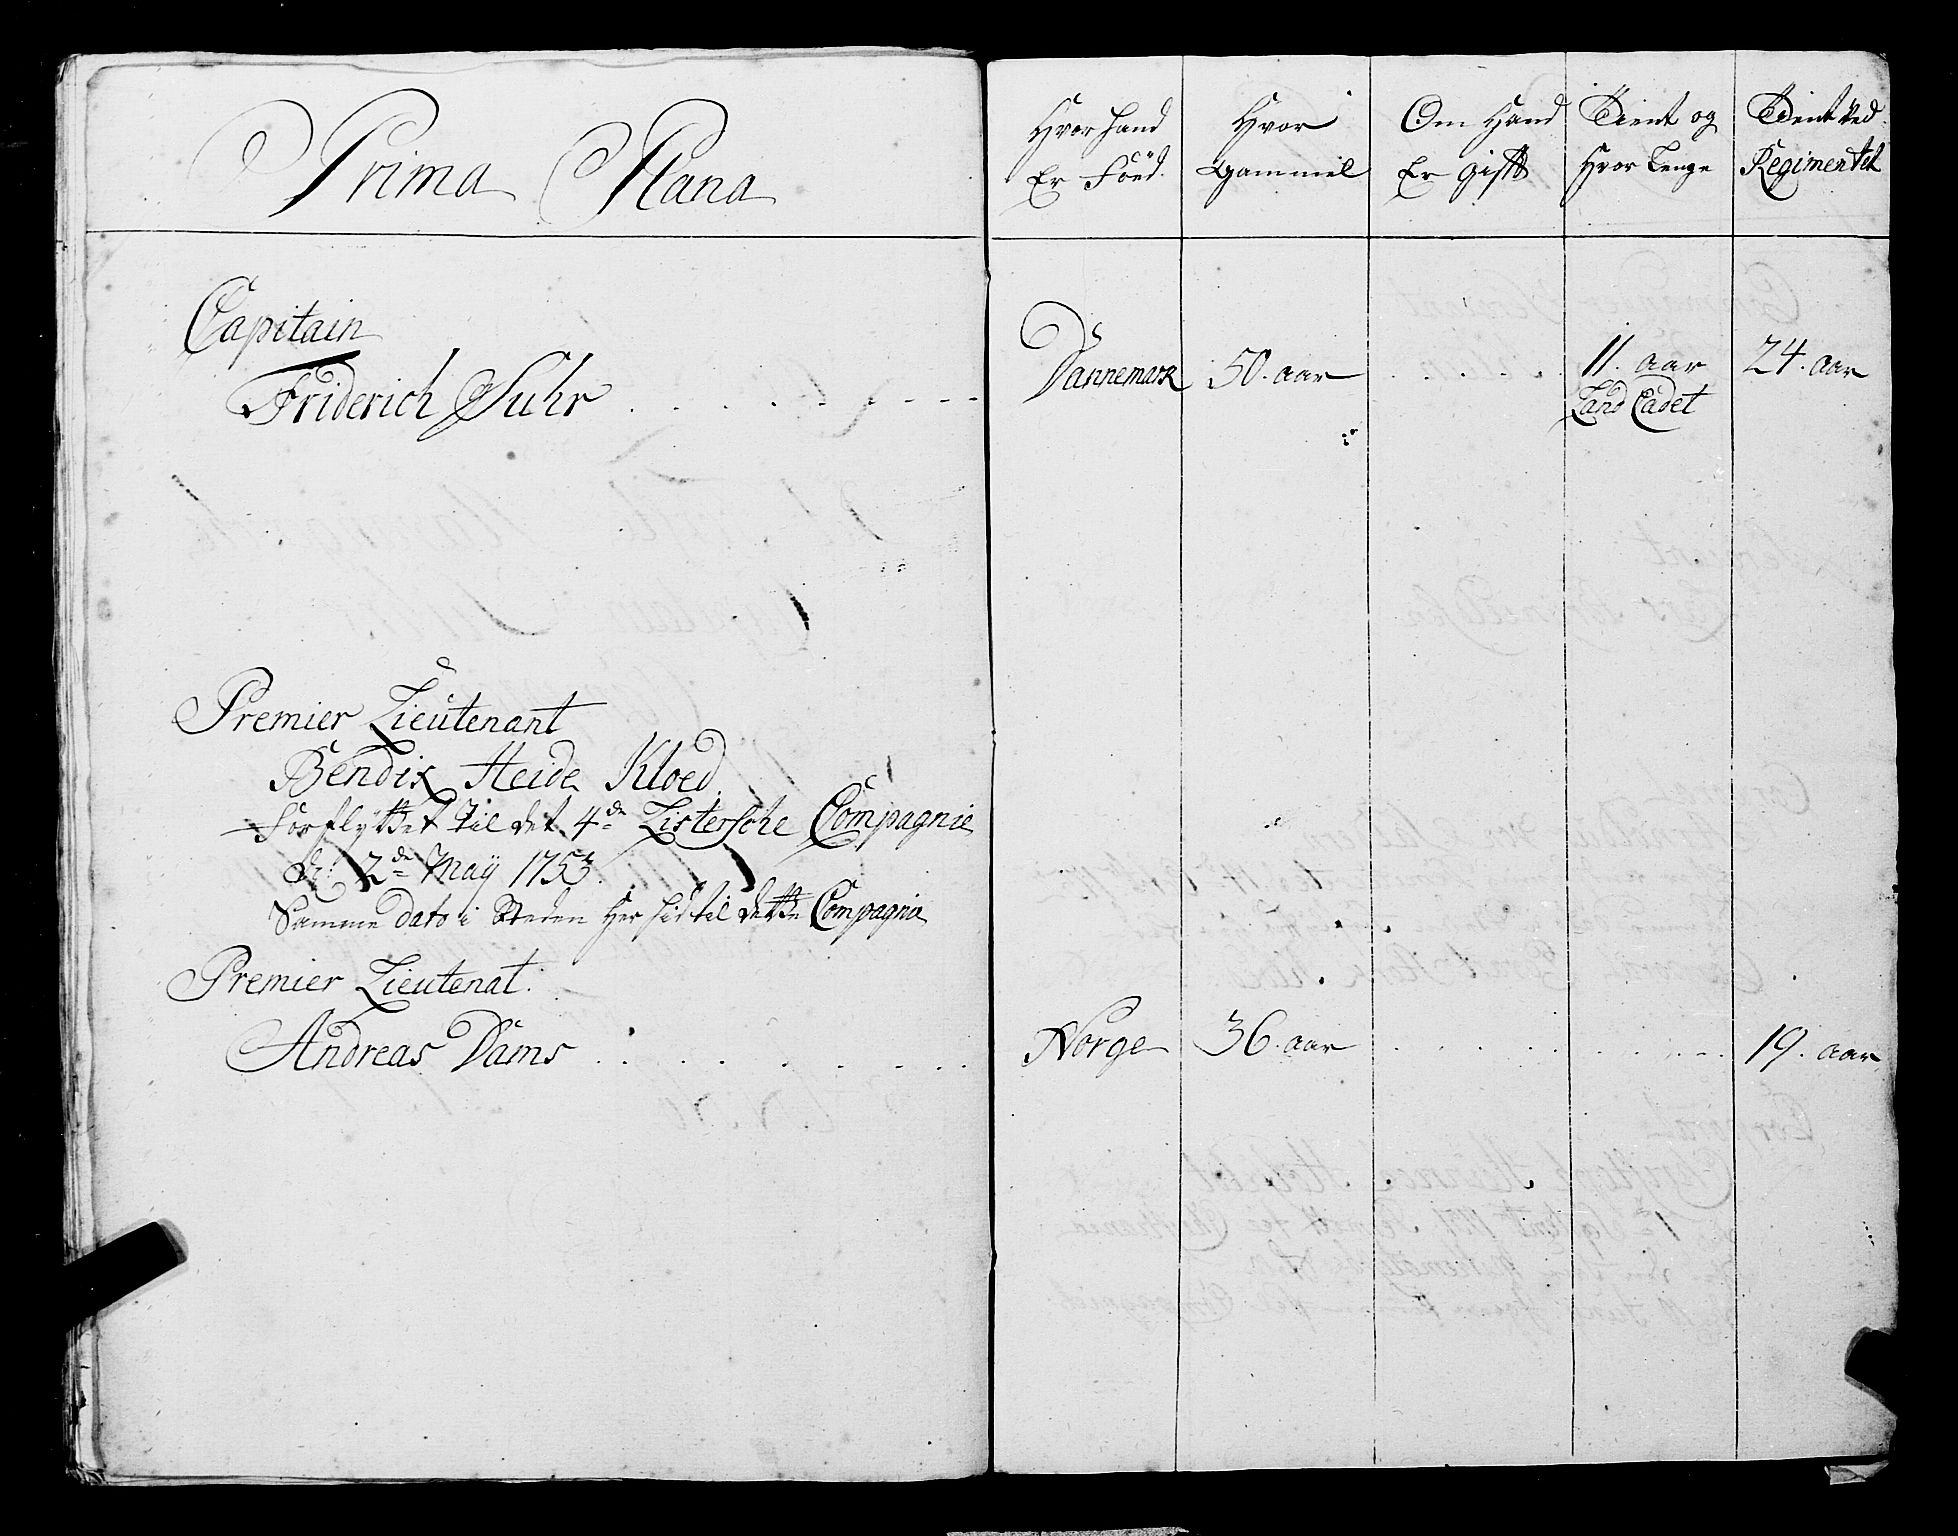 Prima Plana
Hvor hand Er Föed.
Hvor Gammel
Om Hand Er gifft
Tient og Hvor Lenge
Tient ved Regimentet
Capitain
Friderich Suhr
Dannemark 50. aar 11. aar 24. aar
Land Cadet
Premier Lieutenant
Bendix Heide Kloed
Forflyttet til det 4de Listersche Compagnie
d: 2de Maÿ 1753.
Samme dato i Steden Her hid til dette Compagnie
Premier Lieutenat.
Andreas Dams
Norge 36. aar 19. aar